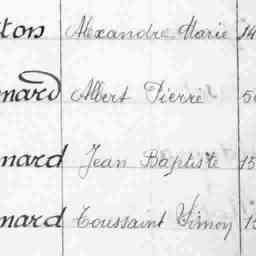 ton Alexandre Marie 14
nard Albert Pierre 5
nard Jean Baptiste 15
nard Toussaint Simon 15